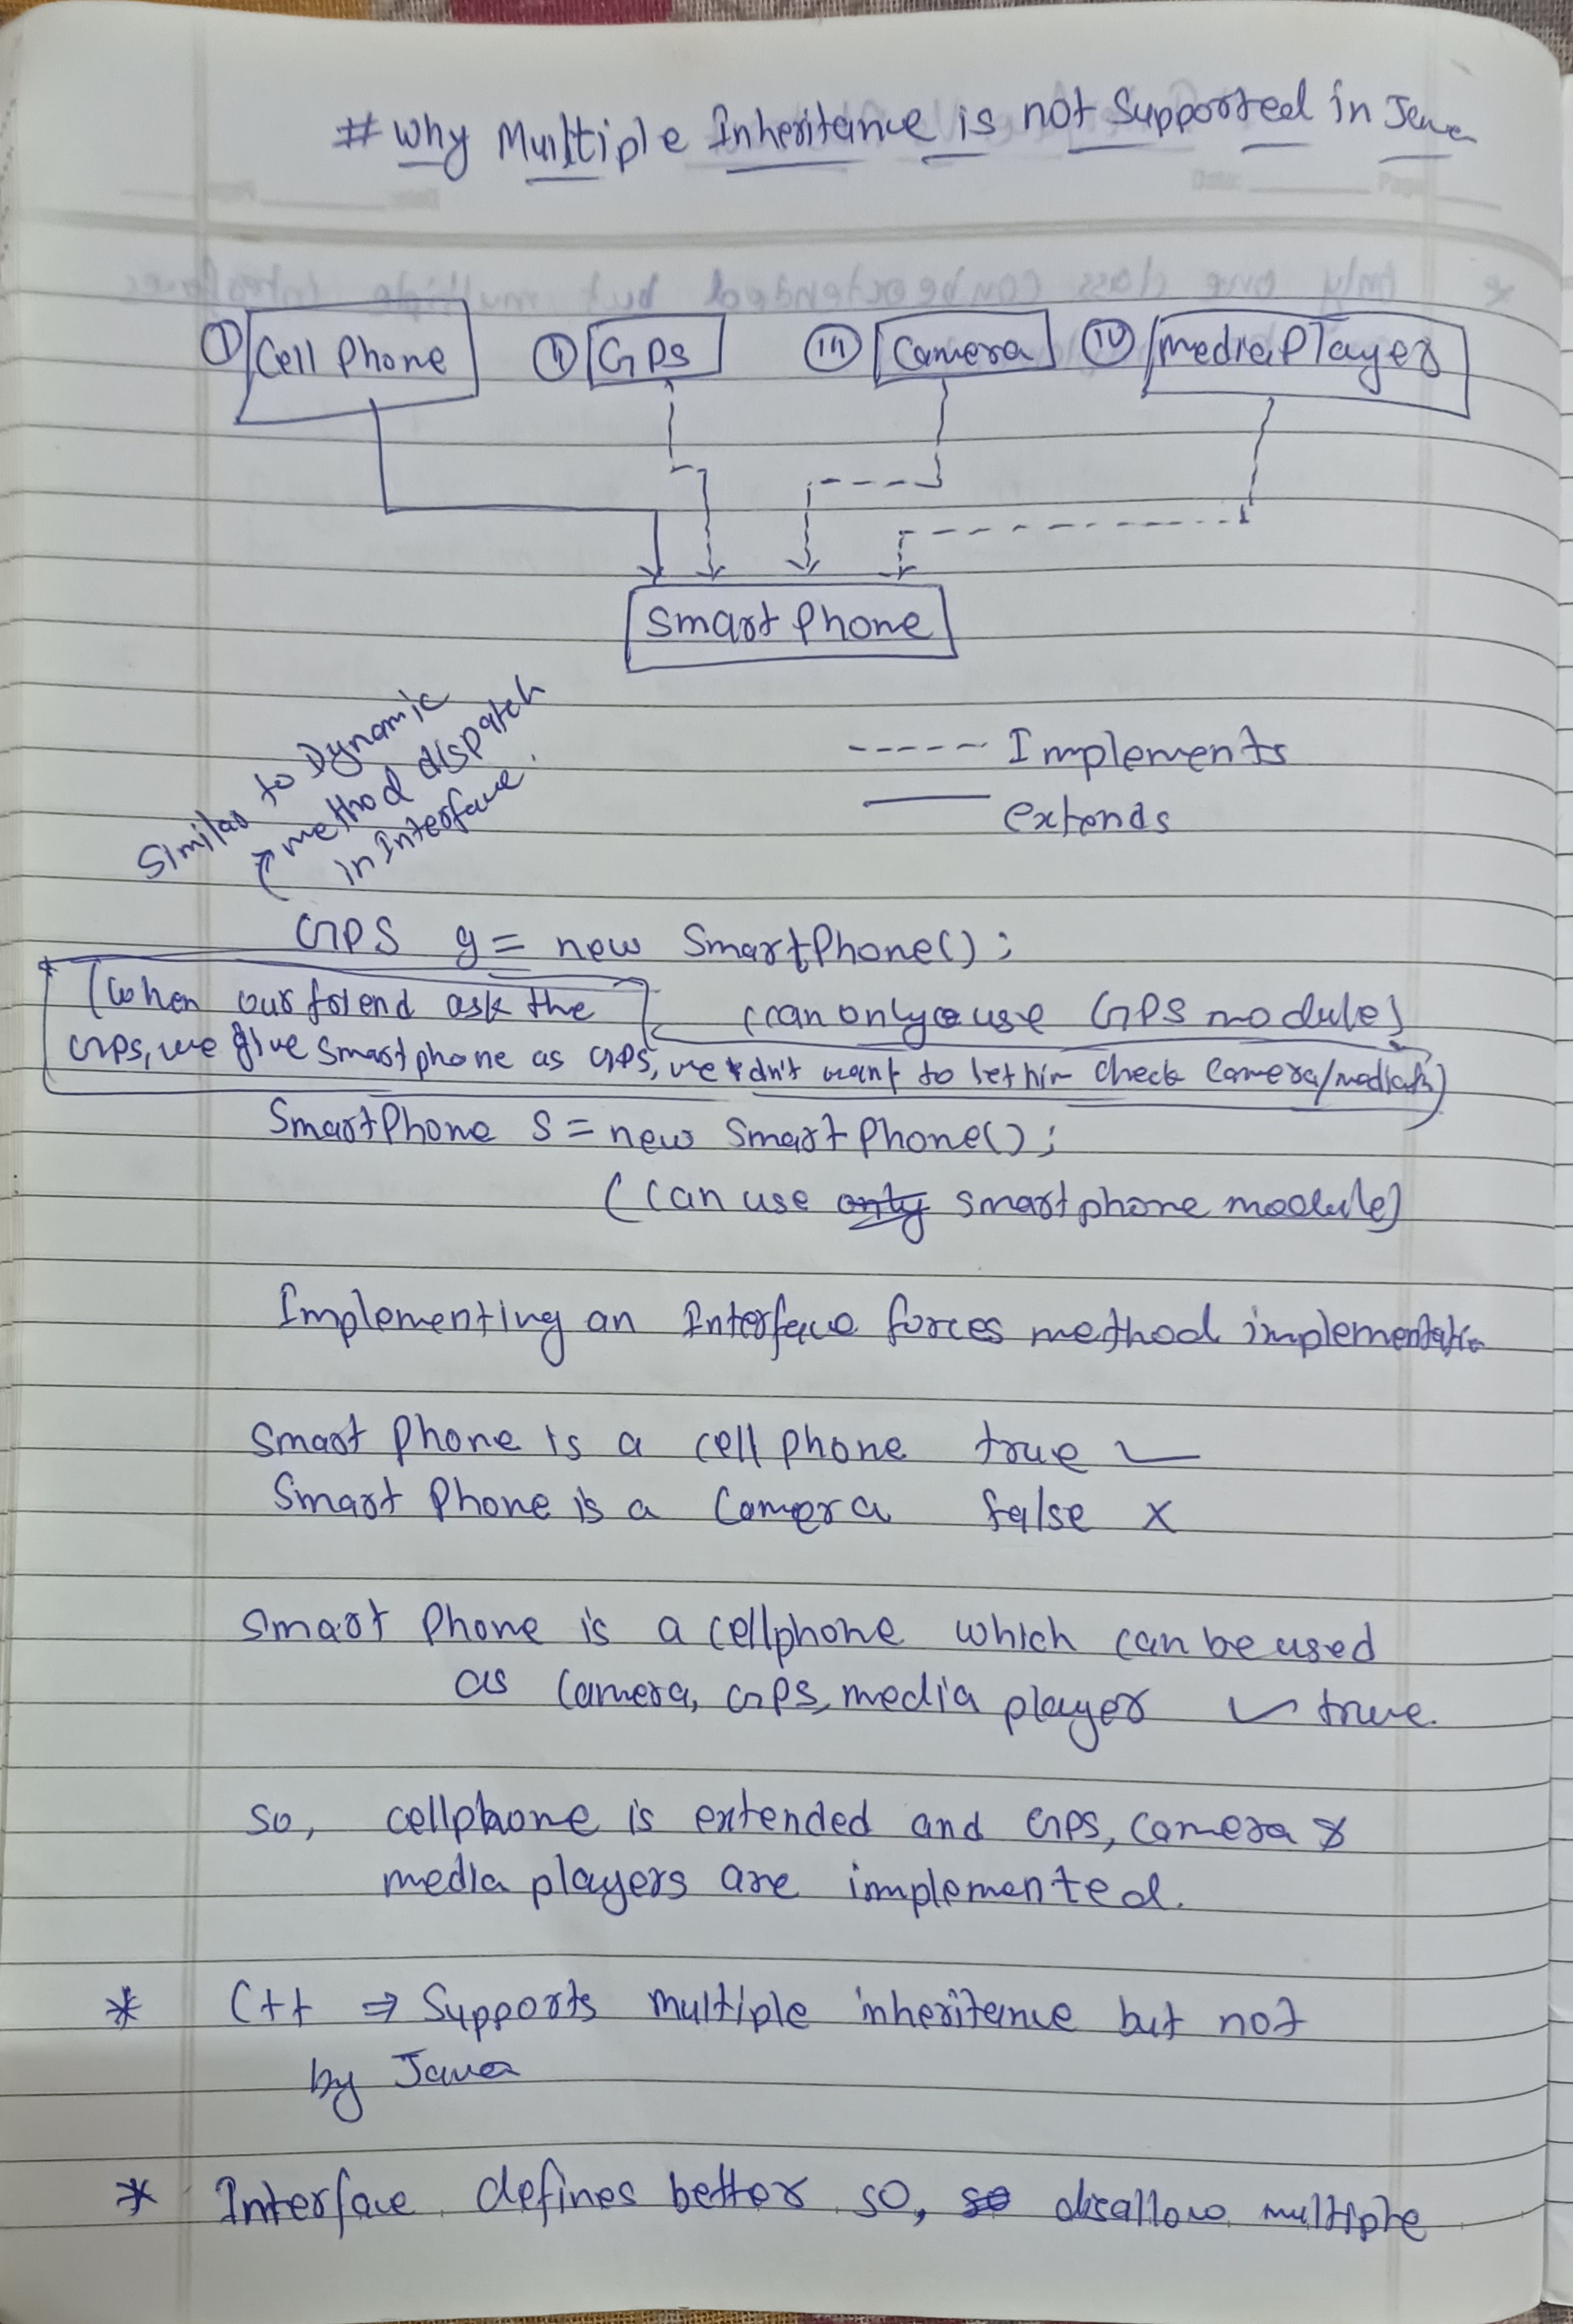 # Why Multiple Inheritance is not Supported in Java
I Cell Phone II GPS III Camera IV Media Player
Smart Phone
Similar to Dynamic
method dispatch
in Interface.
----- Implements
extends
GPS g = new SmartPhone();
(When our friend ask the
(can only use GPS module)
GPS, we give smartphone as GPS, we dn't want to let him check Camera/media)
SmartPhone S = new SmartPhone();
(can use only smartphone module)
Implementing an Interface forces method implementation
Smart Phone is a cell phone true ✓
Smart Phone is a Camera false x
Smart Phone is a cellphone which can be used
as Camera, GPS, media player ✓ true.
so, cellphone is extended and GPS, Camera &
media players are implemented.
* C++ ⇒ Supports multiple inheritance but not
by Java
* Interface defines better so, so disallow multiple